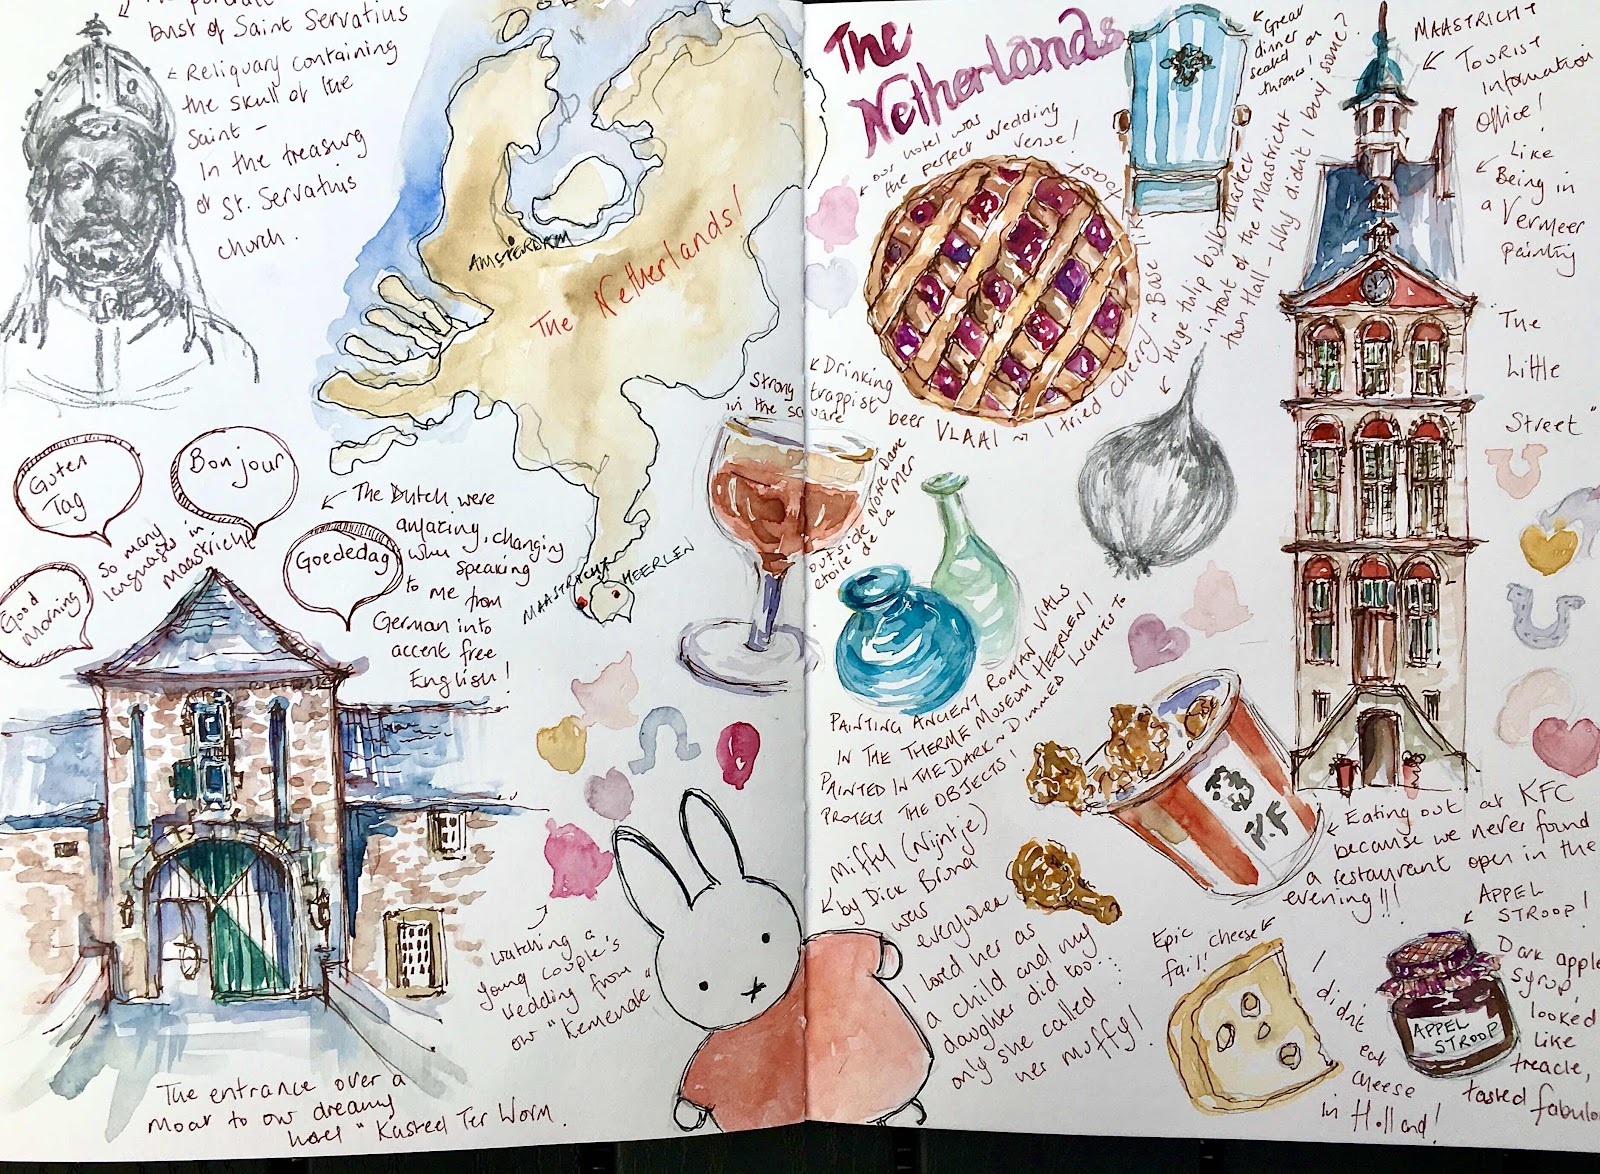 bust of Saint Servatius
Reliquary containing
the skull of the
Saint -
In the treasury
of St. Servatius
church.
AMSTERDAM
The Netherlands!
MAASTRICHT
HEERLEN
Guten
Tag
Bonjour
Goededag
Good
Morning
so many
languages in
Maastricht
The Dutch were
amazing, changing
when speaking
to me from
German into
accent free
English!
The entrance over a
moat to our dreamy
hotel "Kasteel Ter Worm.
watching a
young couple's
wedding from
our "Kemenade"
The
Netherlands
our hotel was
the perfect wedding
venue!
Great
dinner
seated on
thrones!
MAASTRICHT
TOURIST
Information
Office!
Like
Being in
a Vermeer
painting
"The
Little
Street"
Huge tulip bulb market
in front of the Maastricht
town Hall - Why didn't I buy some?
VLAAI ~ I tried cherry ~ Base like
toast
Drinking
strong trappist beer
in the square
outside Notre Dame
etoile de la Mer
PAINTING ANCIENT ROMAN VIALS
IN THE THERME MUSEUM HEERLEN!
PAINTED IN THE DARK ~ DIMMED LIGHTS TO
PROTECT THE OBJECTS!
Miffy (Nijntje)
by Dick Bruna
was
everywhere
I loved her as
a child and my
daughter did too...
only she called
her muffy!
K.F
Eating out at KFC
because we never found
a restaurant open in the
evening!!!
Epic
fail!
cheese
I didn't eat cheese
in Holland!
APPEL
STROOP!
APPEL
STROOP
Dark apple
syrup,
looked
like
treacle,
tasted fabulous